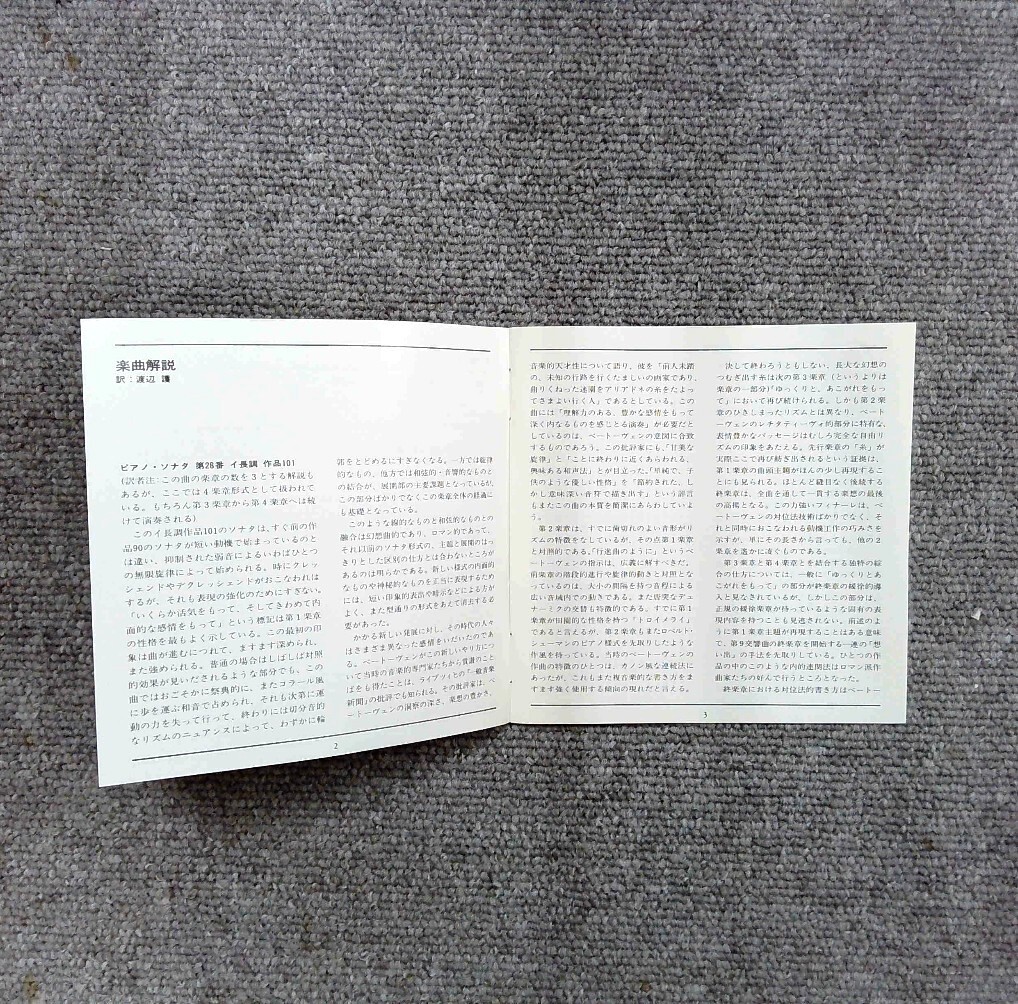 楽曲解説
訳：渡辺 護
ピアノ・ソナタ 第28番 イ長調 作品101
(訳者注：この曲の楽章の数を3とする解説も
あるが、ここでは4楽章形式として扱われて
いる。もちろん第3楽章から第4楽章へは続
けて演奏される)
このイ長調作品101のソナタは、すぐ前の作
品90のソナタが短い動機で始まっているのと
は違い、抑制された弱音によるいわばひとつ
の無限旋律によって始められる。時にクレッ
シェンドやデクレッシェンドがおこなわれは
するが、それも表現の強化のためにすぎない。
「いくらか活気をもって、そしてきわめて内
面的な感情をもって」という標記は第1楽章
の性格を最もよく示している。この最初の印
象は曲が進むにつれて、ますます深められ、
また強められる。普通の場合はしばしば対照
的効果が見いだされるような部分でも、この
曲ではおごそかに祭典的に、またコラール風
に歩を運ぶ和音で占められ、それも次第に運
動の力を失って行って、終わりには切分音的
なリズムのニュアンスによって、わずかに輪
郭をとどめるにすぎなくなる。一方では旋律
的なもの、他方では和弦的・音響的なものと
の結合が、展開部の主要課題となっているが、
この部分ばかりでなくこの楽章全体の経過に
も基礎となっている。
このような線的なものと和弦的なものとの
融合は幻想曲的であり、ロマン的であって、
それ以前のソナタ形式の、主題と展開のはっ
きりとした区別の仕方とは合わないところが
あるのは明らかである。新しい様式の内面的
なものや神秘的なものを正当に表現するため
には、短い印象的表出や暗示などによる方が
よく、また型通りの形式をあえて消去する必
要があった。
かかる新しい発展に対し、その時代の人々
はさまざま異なった感情をいだいたのであ
る。ベートーヴェンがこの新しいやり方につ
いて当時の音楽的専門家たちから賞讃のこと
ばをも得たことは、ライプツィヒの「一般音楽
新聞」の批評でも知られる。その批評家は、ベ
ートーヴェンの洞察の深さ、楽想の豊かさ、
2
音楽的天才性について語り、彼を「前人未踏
の、未知の行路を行くたましいの画家であり、
曲りくねった迷園をアリアドネの糸をたよっ
てさまよい行く人」であるとしている。この
曲には「理解力のある、豊かな感情をもって
深く内なるものを感じとる演奏」が必要だと
しているのは、ベートーヴェンの意図に合致
するものであろう。この批評家にも、「甘美な
旋律」と「ことに終わりに近くあらわれる、
興味ある和声法」とが目立った。「単純で、子
供のような優しい性格」を「節約された、し
かし意味深い音符で描き出す」という評言
もまたこの曲の本質を簡潔にあらわしていよ
う。
第2楽章は、すでに歯切れのよい音形がリ
ズムの特徴をなしているが、その点第1楽章
と対照的である。「行進曲のように」というベ
ートーヴェンの指示は、広義に解すべきだ。
前楽章の階段的進行や旋律的動きと対照とな
っているのは、大小の間隔を持つ音程による
広い音域内での動きである。また唐突なデュ
ナーミクの交替も特徴的である。すでに第1
楽章が田園的な性格を持つ「トロイメライ」
であると言えるが、第2楽章もまたロベルト・
シューマンのピアノ様式を先取りしたような
作風を持っている。当時のベートーヴェンの
作曲の特徴のひとつは、カノン風な連続法に
あったが、これもまた複音楽的な書き方をま
すます強く使用する傾向の現れだと言える。
決して終わろうともしない、長大な幻想の
つむぎ出す糸は次の第3楽章 (というよりは
楽章の一部分)「ゆっくりと、あこがれをもっ
て」において再び続けられる。しかも第2楽
章のひきしまったリズムとは異なり、ベート
ーヴェンのレチタティーヴォ的部分に特有な、
表情豊かなパッセージはむしろ完全な自由リ
ズムの印象をあたえる。先行楽章の「糸」が
実際ここで再び続き出されるという証拠は、
第1楽章の曲頭主題がほんの少し再現するこ
とにも見られる。ほとんど縫目なく後続する
終楽章は、全曲を通して一貫する楽想の最後
の高揚となる。この力強いフィナーレは、ベ
ートーヴェンの対位法技術ばかりでなく、そ
れと同時におこなわれる動機工作の巧みさを
示すが、単にその長さから言っても、他の2
楽章を遥かに凌ぐものである。
第3楽章と第4楽章とを結合する独特な綜
合の仕方については、一般に「ゆっくりとあ
こがれをもって」の部分が終楽章の緩徐的導
入と見なされているが、しかしこの部分は、
正規の緩徐楽章が持っているような固有の表
現内容を持つことも見逃されない。前述のよ
うに第1楽章主題が再現することはある意味
で、第9交響曲の終楽章を開始する一連の「想
い出」の手法を先取りしている。ひとつの作
品の中のこのような内的連関法はロマン派作
曲家たちの好んで行うところとなった。
終楽章における対位法的書き方はベートー
3